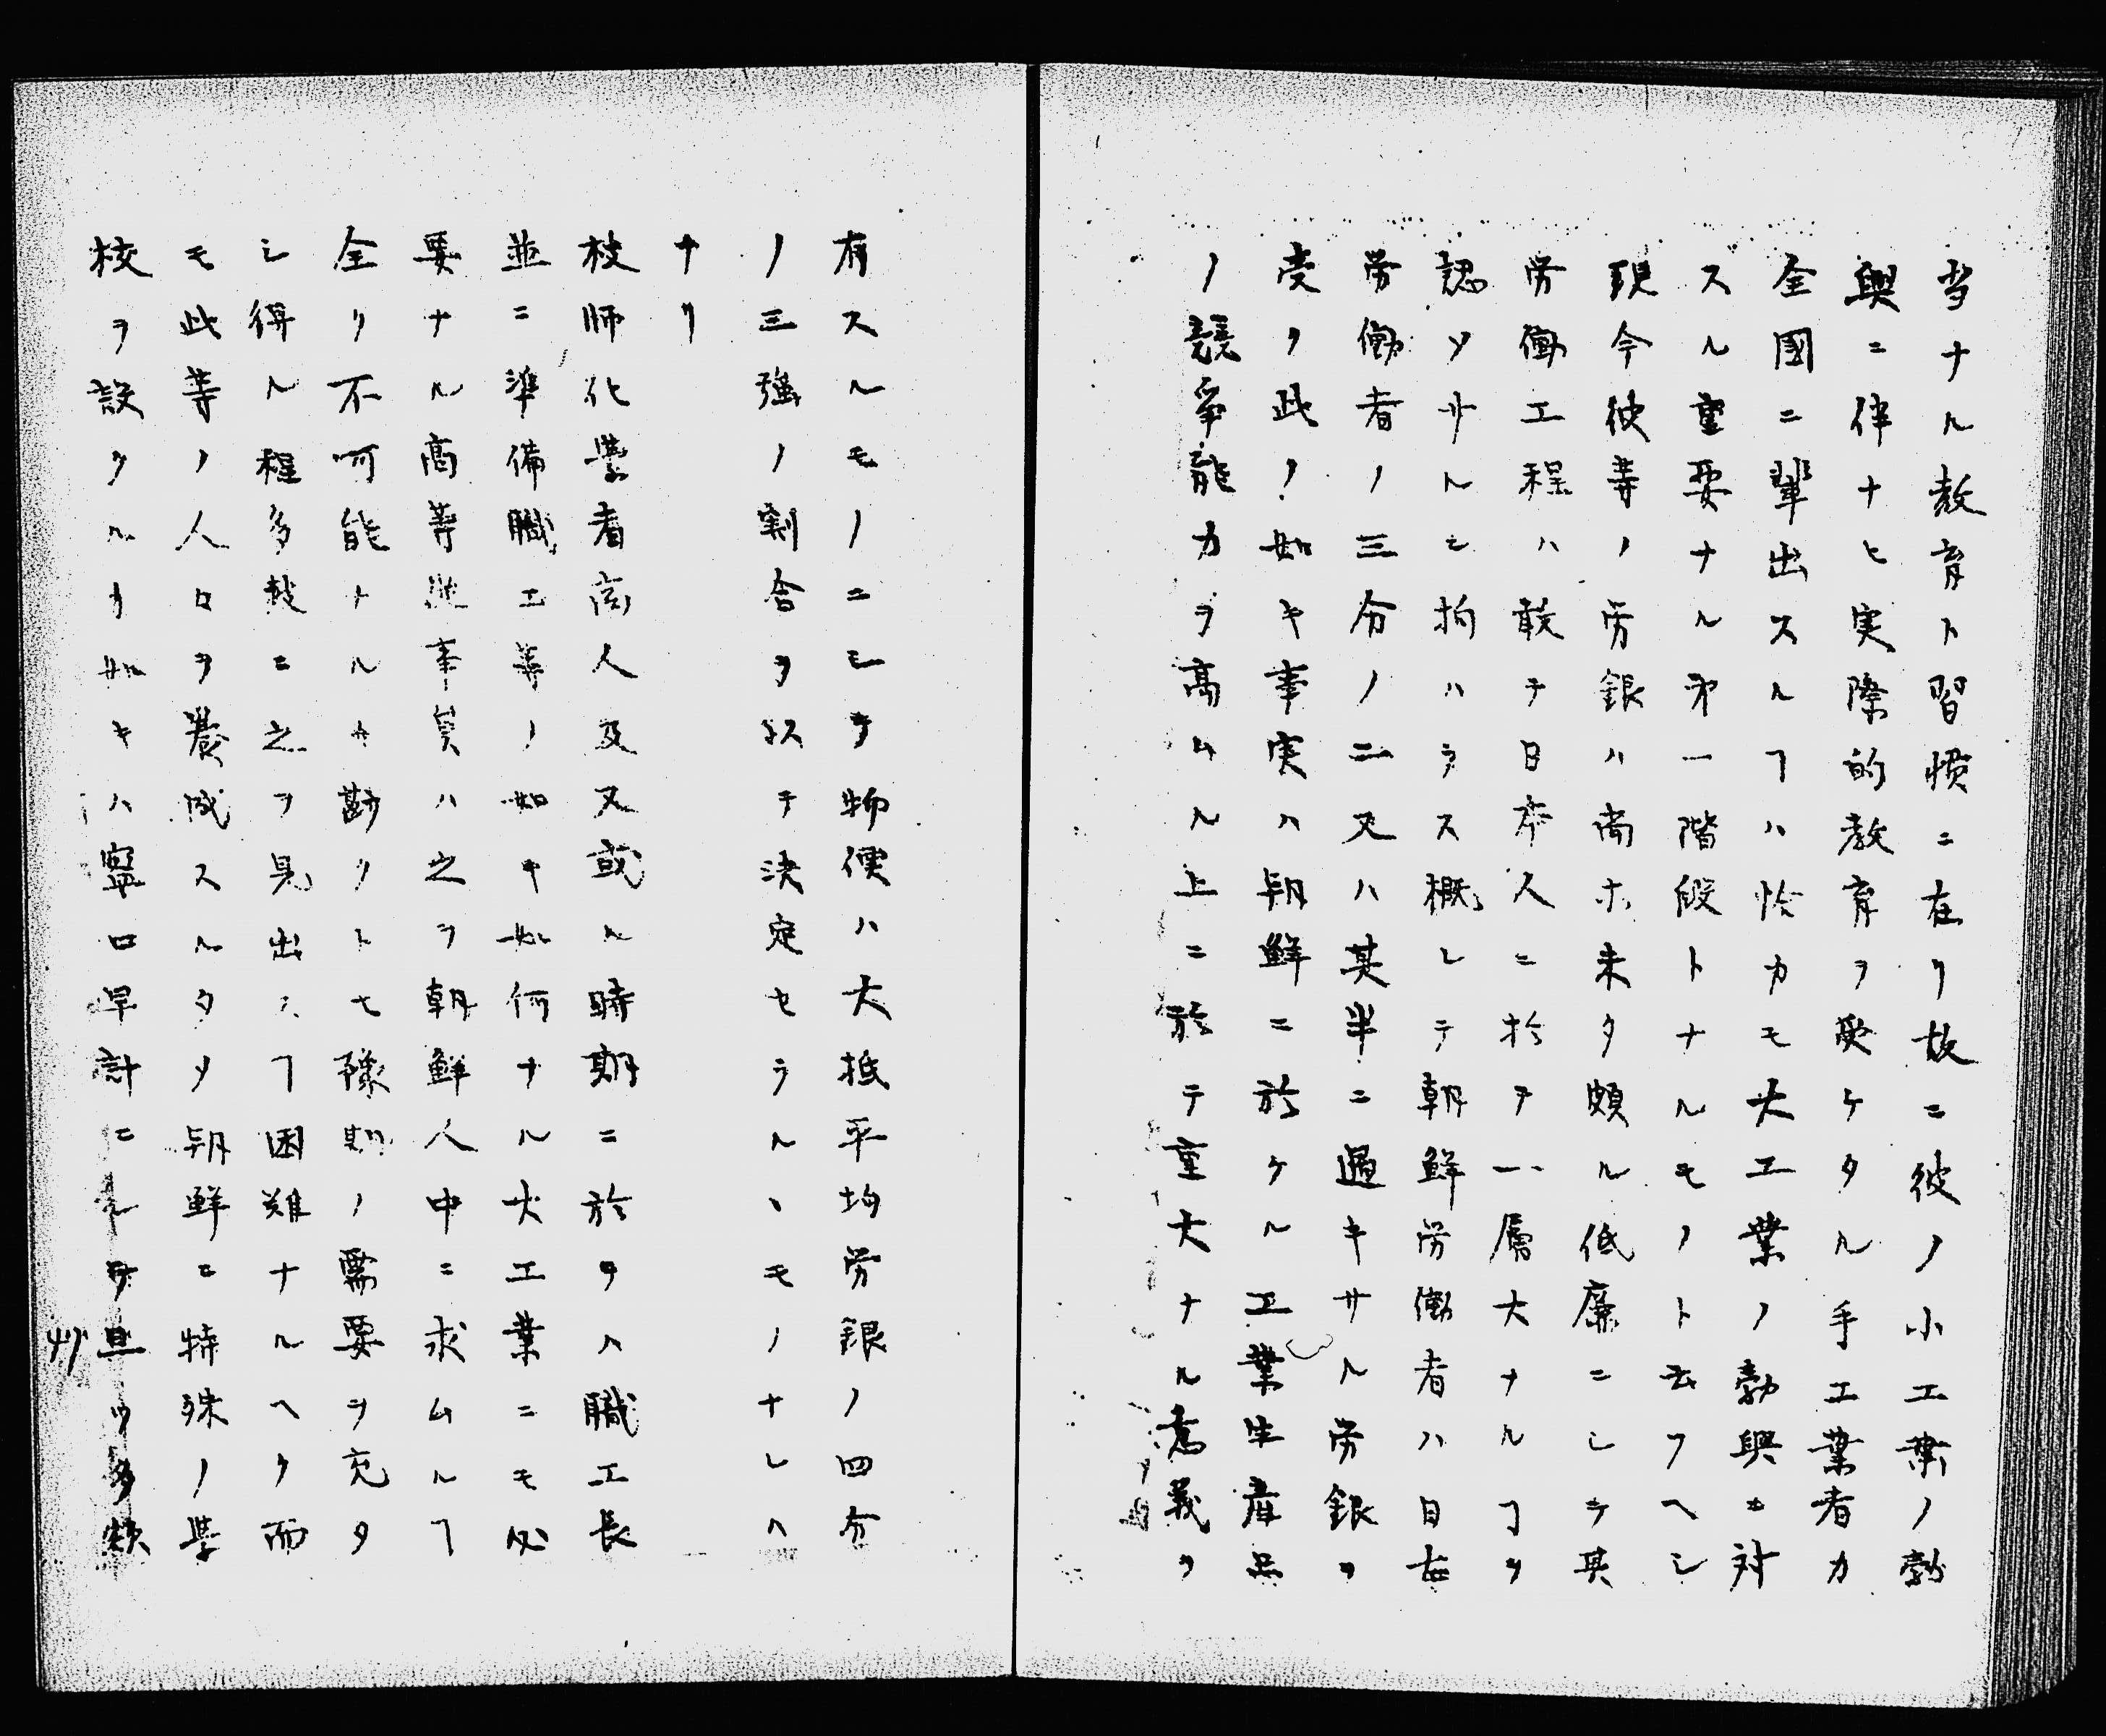 当ナル教育ト習慣ニ在リ故ニ彼ノ小工業ノ勃
興ニ伴ナヒ実際的教育ヲ受ケタル手工業者カ
全國ニ輩出スルヿハ恰カモ大工業ノ勃興ニ対
スル重要ナル第一階段トナルモノト云フヘシ
現今彼等ノ労銀ハ尚ホ未タ頗ル低廉ニシテ其
労働工程ハ敢テ日本人ニ於テ一層大ナルヿヲ
認メサルニ拘ハラス概シテ朝鮮労働者ハ日本
労働者ノ三分ノ二又ハ其半ニ過キサル労銀ヲ
受ク此ノ如キ事実ハ朝鮮ニ於ケル工業生産品
ノ競争能力ヲ高ムル上ニ於テ重大ナル意義ヲ
有スルモノニシテ物價ハ大抵平均労銀ノ四分
ノ三強ノ割合ヲ以テ決定セラルヽモノナレハ
ナリ
技師化學者商人及又或ル時期ニ於テハ職工長
並ニ準備職工等ノ如キ如何ナル大工業ニモ必
要ナル高等従事員ハ之ヲ朝鮮人中ニ求ムルヿ
全リ不可能トルカ尠クトモ豫期ノ需要ヲ充タ
シ得ル程多数ニ之ヲ見出スヿ困難ナルヘク而
モ此等ノ人口ヲ養成スルタメ朝鮮ニ特殊ノ學
校ヲ設クルカ如キハ寧ロ早計ニシテ且ツ多額